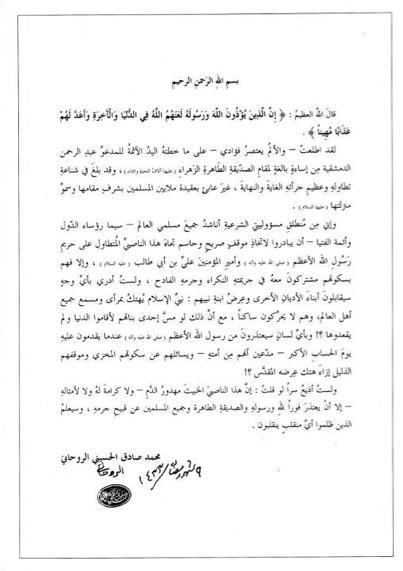 بسم الله الرحمن الرحيم
قال الله العظيم : ﴿ إنّ الَّذِينَ يُؤْذُونَ اللَّهَ وَرَسُولَهُ لَعَنَهُمُ اللَّهُ فِي الدُّنْيَا وَالْآخِرَةِ وَأَعَدَّ لَهُمْ
عَذَابًا مُهِيناً ﴾ .
لقد اطلعتُ – والألمُ يعتصرُ فؤادي – على ما خطتهُ اليدُ الآثمةُ للمدعوِّ عبدِ الرحمنِ
الدمشقية مِن إساءةٍ بالغةٍ لمقامِ الصدّيقةِ الطاهرةِ الزهراءِ ، وقد بلغَ في شناعةِ
تطاولهِ وعظيمِ جرأتهِ الغايةَ والنهايةَ ، غيرَ عابئٍ بعقيدةِ ملايين المسلمين بشرفِ مقامها وسموِّ
منزلتها (عليها السلام) .
وإني مِن مُنطلقِ مسؤوليتي الشرعيةِ أناشدُ جميعَ مسلمي العالم – سيما رؤساء الدّول
وأئمة الفتيا – أن يبادروا لاتخاذِ موقفٍ صريحٍ وحاسمٍ تجاهَ هذا الناصبيِّ المُتطاولِ على حريمِ
رسولِ اللهِ الأعظمِ (صلى الله عليه وآله) وأميرِ المؤمنينَ عليِّ بن أبي طالب (عليه السلام) ، وإلا فهم
بسكوتهم مشتركونَ معهُ في جريمتهِ النكراء وجرمهِ الفادحِ ، ولستُ أدري بأيِّ وجهٍ
سيقابلونَ أبناءَ الأديانِ الأخرى وعِرضُ ابنةِ نبيهم : نبيِّ الإسلامِ يُهتَكُ بمرأى ومسمعِ جميعِ
أهلِ العالم، وهم لا يحرّكون ساكناً ، مع أنَّ ذلك لو مسَّ إحدى بناتهم لأقاموا الدنيا ولم
يقعدوها ؟! وبأيِّ لسانٍ سيعتذرونَ من رسولِ الله الأعظمِ (صلى الله عليه وآله) عندما يقدمون عليهِ
يومَ الحسابِ الأكبرِ – مدّعين أنهم مِن أمتهِ – ويسائلهم عن سكوتهم المخزي وموقفهم
الذليلِ إزاءَ هتكِ عِرضهِ المقدّس ؟!
ولستُ أُذيعُ سراً لو قلتُ : إنَّ هذا الناصبيَّ الخبيثَ مهدورُ الدَّمِ – ولا كرامةَ لهُ ولا لأمثالهِ
– إلا أنْ يعتذرَ فوراً للهِ ورسولهِ والصديقةِ الطاهرة وجميع المسلمين عن قبيحِ جرمهِ ، وسيعلمُ
الذين ظلموا أيَّ منقلبٍ ينقلبون .
محمد صادق الحسيني الروحاني